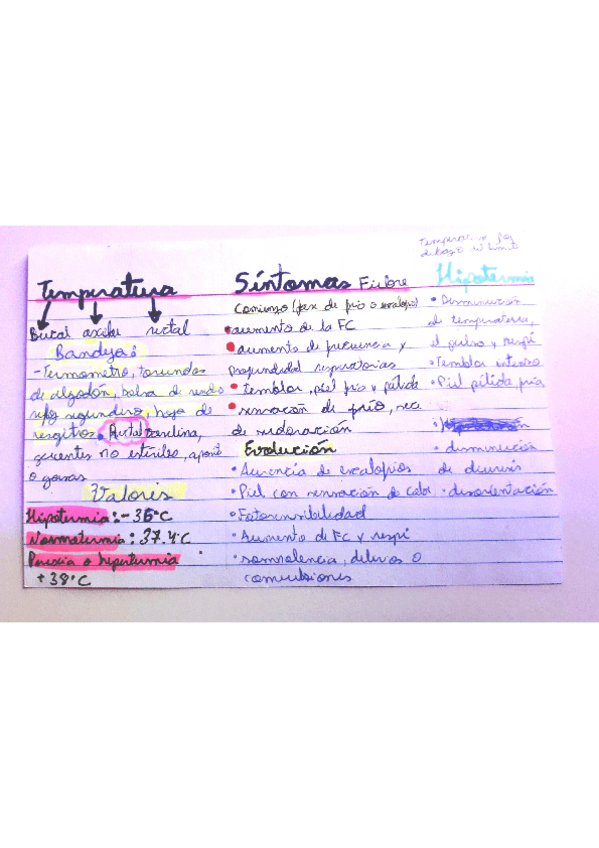 Temperatura
Bucal axilar rectal
Bandeja:
- Termometro, torundas
de algodón, bolsa de
reloj segundero, hoja de
registros. Rectal vaselina,
guantes no estériles,
o gasas
Valores
Hipotermia: - 36°C
Normotermia: 37.4°C
Pirexia o hipertermia
+ 38°C
Síntomas Fiebre
Comienzo (fase de frío o escalofrío)
• aumento de la FC
• aumento de frecuencia y
profundidad respiratorias
• temblor, piel fría y pálida
• sensación de frío,
de sudoración
Evolución
• Ausencia de escalofríos
• Piel con sensación de calor
• Fotosensibilidad
• Aumento de FC y respi
• somnolencia, delirios o
convulsiones
temperatura por
debajo del limite
Hipotermia
• Disminución
d temperatura,
el pulso y respi
• Temblor intenso
• Piel pálida fría
• disminución
de diuresis
• desorientación